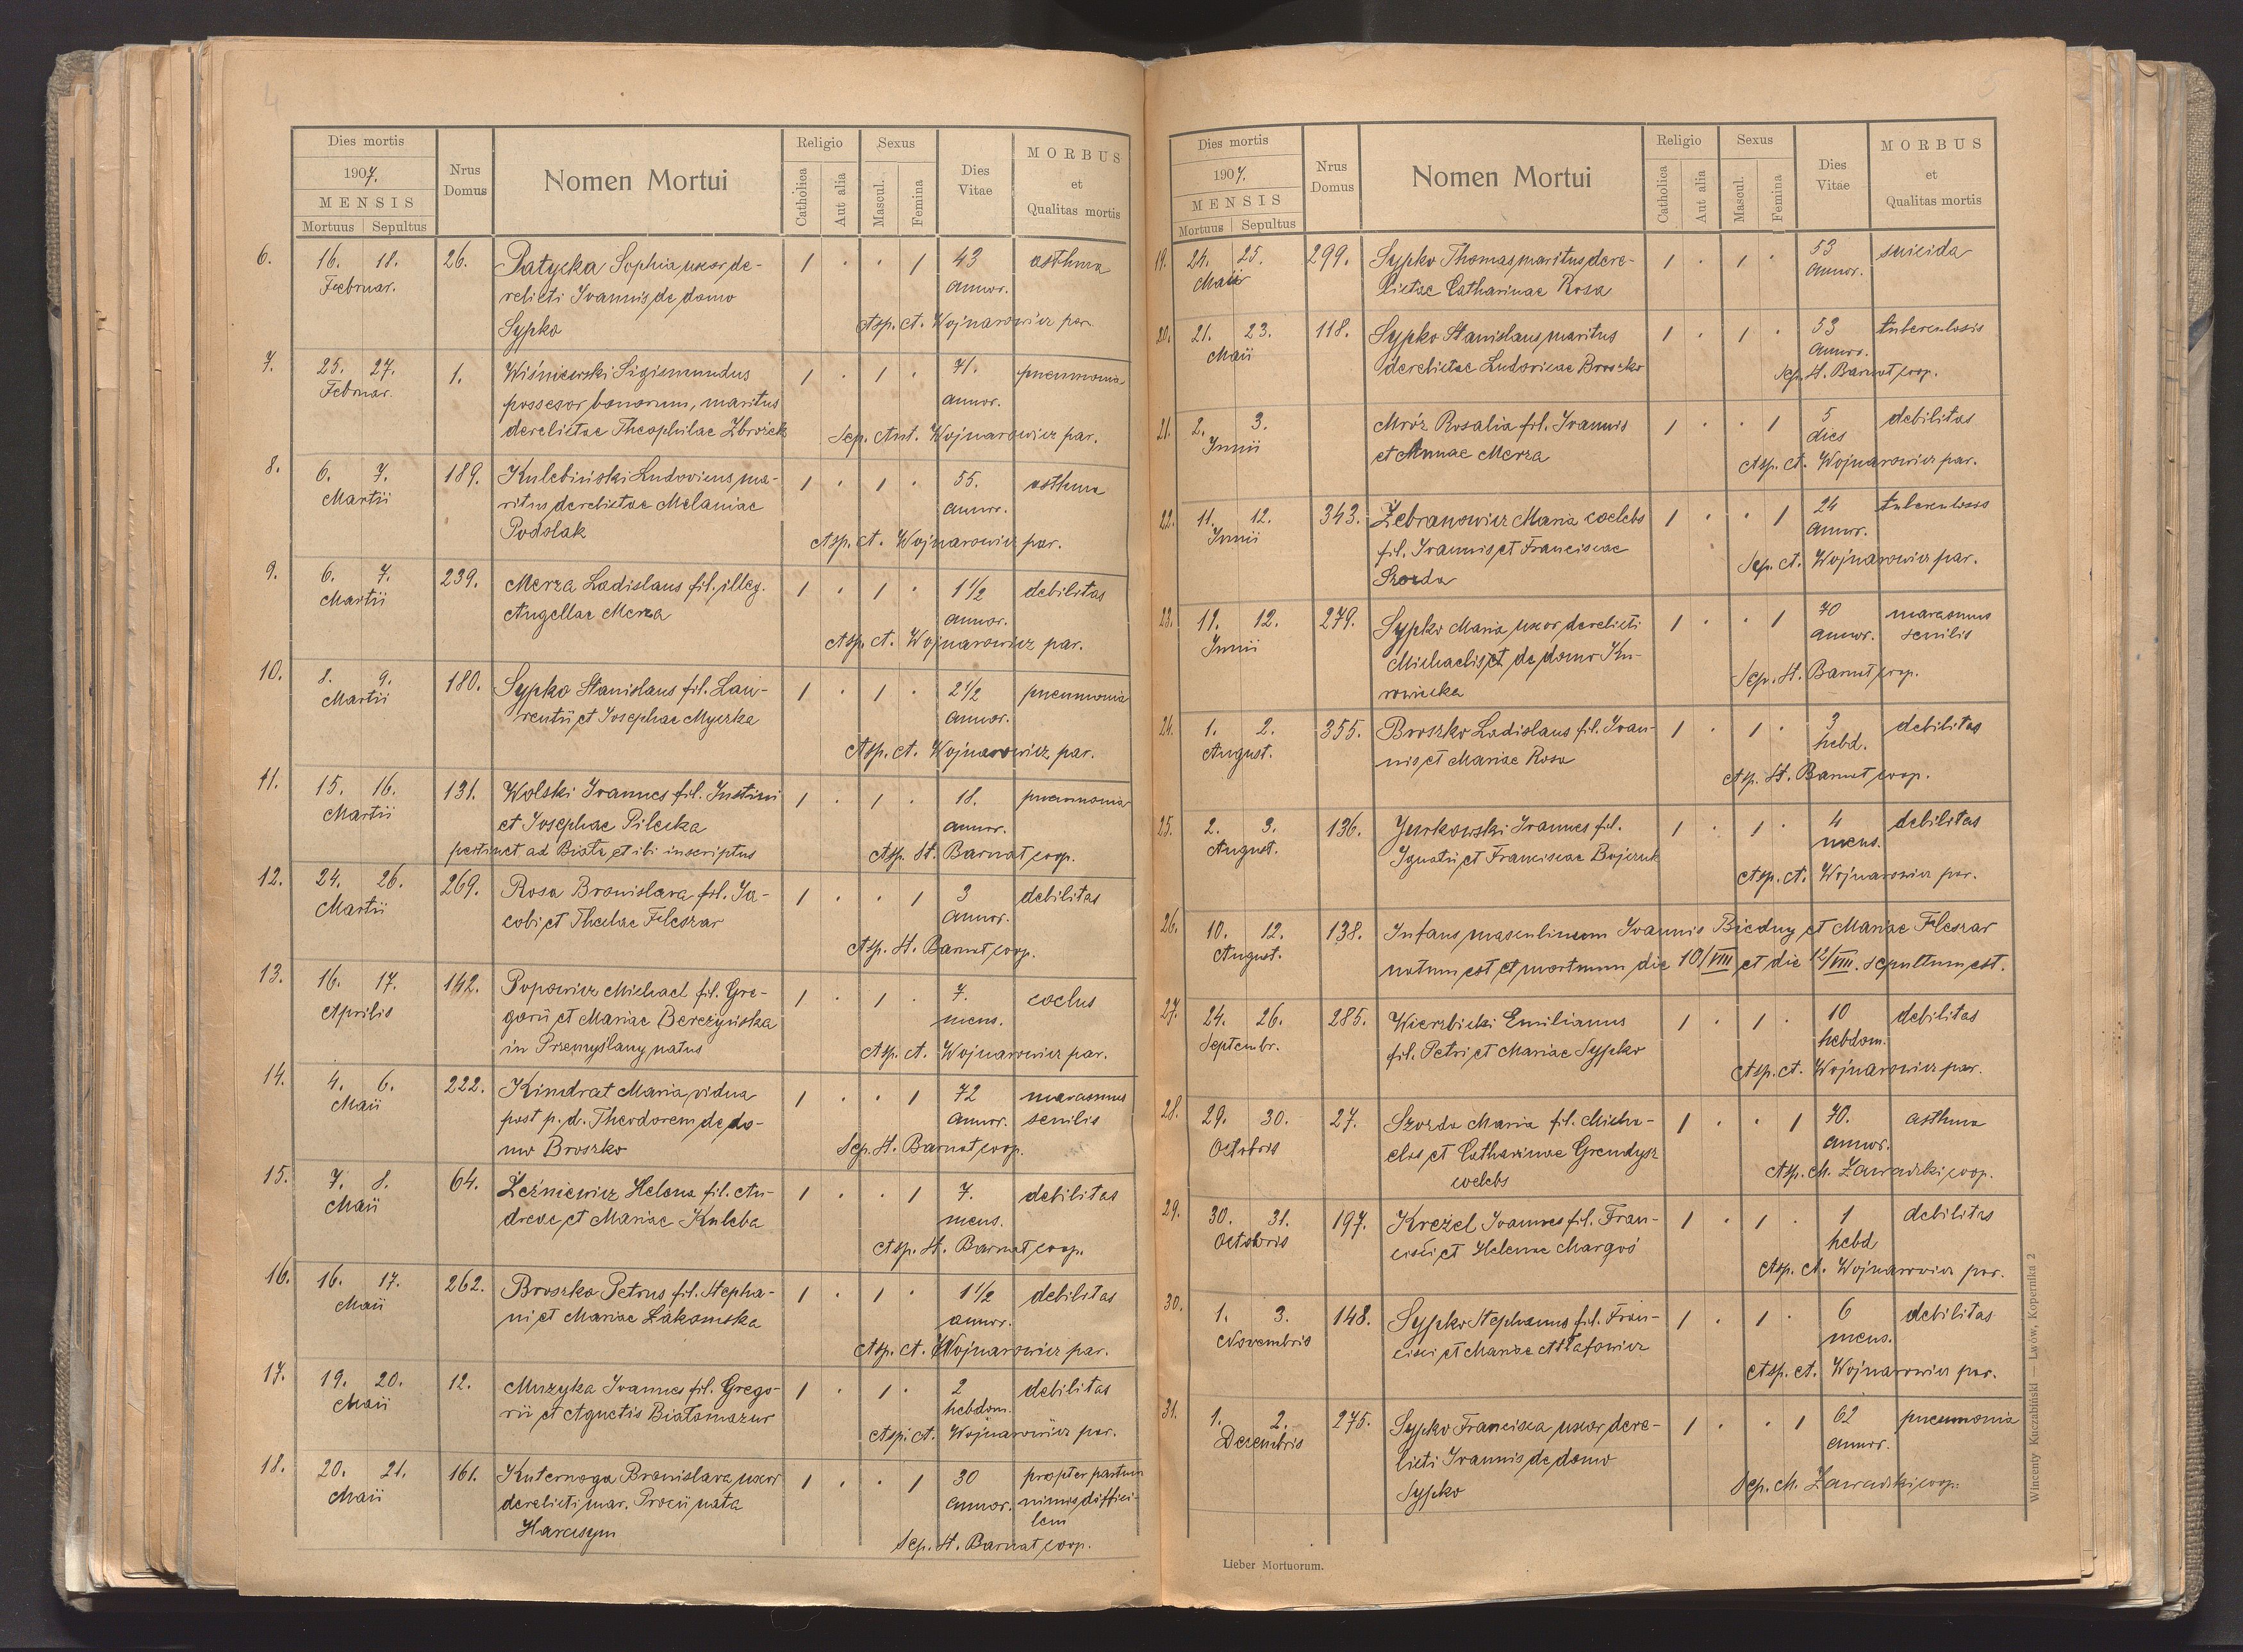 4
Dies mortis
1907.
MENSIS
Mortuus Sepultus
Nrus Domus
Nomen Mortui
Religio
Catholica
Aut alia
Sexus
Mascul.
Femina
Dies Vitae
MORBUS
et
Qualitas mortis
6. 16. 18. 26. Patycka Sophia, uxor de- 1 . . 1 43 asthma
Februar. relicti Ioannis, de domo annor.
Sypko Asp. A. Wojnarowicz par.
7. 25. 27. 1. Wiśniewski Sigismundus 1 . 1 . 71. pneumonia
Februar. possesor bonorum, maritus annor.
derelictae Theophilae Zbrożek Sep. Ant. Wojnarowicz par.
8. 6. 7. 189. Kulebiński Ludovicus, ma- 1 . 1 . 55. asthma
Martii ritus derelictae Melaniae annor.
Podolak Asp. A. Wojnarowicz par.
9. 6. 7. 239. Merza Ladislaus fil. illeg. 1 . 1 . 1 1/2 debilitas
Martii Angellae Merza annor.
Asp. A. Wojnarowicz par.
10. 8. 9. 180. Sypko Stanislaus fil. Lau- 1 . 1 . 2 1/2 pneumonia
Martii rentii et Josephae Mycrka annor.
Asp. A. Wojnarowicz par.
11. 15. 16. 131. Wolski Ioannes fil. Justini 1 . 1 . 18. pneumonia
Martii et Josephae Pilecka annor.
pertinet ad Biała et ibi inscriptus Asp. St. Barnat coop.
12. 24. 26. 269. Rosa Bronislava fil. Ja- 1 . . 1 3 debilitas
Martii cobi et Theclae Fleszar annor.
Asp. St. Barnat coop.
13. 16. 17. 142. Popowicz Michael fil. Gre- 1 . 1 . 7. coclus
Aprilis gorii et Mariae Bereżyńska mens.
in Przemyślany natus Asp. A. Wojnarowicz par.
14. 4. 6. 222. Kindrat Maria, vidua 1 . . 1 72 marasmus
Maii post p. d. Theodorem, de do- annor. senilis
mo Broszko Sep. St. Barnat coop.
15. 7. 8. 64. Leśniewicz Helena fil. An- 1 . . 1 7. debilitas
Maii dreae et Mariae Kuleba mens.
Asp. St. Barnat coop.
16. 16. 17. 262. Broszko Petrus fil. Stepha- 1 . 1 . 1 1/2 debilitas
Maii ni et Mariae Łakomska annor.
Asp. A. Wojnarowicz par.
17. 19. 20. 12. Muzyka Ioannes fil. Grego- 1 . 1 . 2 debilitas
Maii rii et Agnetis Białomazur hebdom.
Asp. A. Wojnarowicz par.
18. 20. 21. 161. Kuternoga Bronislava, uxor 1 . . 1 30 propter partum
Maii derelicti mar. Procii, nata annor. nimis diffici-
Harasym lem
Sep. St. Barnat coop.
Dies mortis
1907.
MENSIS
Mortuus Sepultus
Nrus Domus
Nomen Mortui
Religio
Catholica
Aut alia
Sexus
Mascul.
Femina
Dies Vitae
MORBUS
et
Qualitas mortis
19. 24. 25. 299. Sypko Thomas, maritus dere- 1 . 1 . 53 suicida
Maii lictae Catharinae Rosa annor.
20. 21. 23. 118. Sypko Stanislaus, maritus 1 . 1 . 53 tuberculosis
Maii derelictae Ludovicae Broszko annor.
Sep. St. Barnat coop.
21. 2. 3. Mróz Rosalia fil. Ioannis 1 . . 1 5 debilitas
Junii et Annae Merza dies
Asp. A. Wojnarowicz par.
22. 11. 12. 343. Żebranowicz Maria coelebs 1 . . 1 24 tuberculosis
Junii fil. Ioannis et Franciscae annor.
Szozda Sep. A. Wojnarowicz par.
23. 11. 12. 279. Sypko Maria, uxor derelicti 1 . . 1 70 marasmus
Junii Michaelis, et de domo Ku- annor. senilis
rowicka Sep. St. Barnat coop.
24. 1. 2. 355. Broszko Ladislaus fil. Ioan- 1 . 1 . 3 debilitas
August. nis et Mariae Rosa hebd.
Asp. St. Barnat coop.
25. 2. 3. 136. Jurkowski Ioannes fil. 1 . 1 . 4 debilitas
August. Ignatii et Franciscae Bojczuk mens.
Asp. A. Wojnarowicz par.
26. 10. 12. 138. Infans masculinum Ioannis Biedny et Mariae Fleszar
August. natum est et mortuum die 10/VIII et die 12/VIII. sepultum est.
27. 24. 26. 285. Wierzbicki Emilianus 1 . 1 . 10 debilitas
Septembr. fil. Petri et Mariae Sypko hebdom.
Asp. A. Wojnarowicz par.
28. 29. 30. 27. Szozda Maria fil. Micha- 1 . . 1 70. asthma
Octobris elis et Catharinae Grendysz annor.
coelebs Asp. M. Zawadzki coop.
29. 30. 31. 197. Kreżel Ioannes fil. Fran- 1 . 1 . 1 debilitas
Octobris cisci et Helenae Margoś hebd
Asp. A. Wojnarowicz par.
30. 1. 3. 148. Sypko Stephanus fil. Fran- 1 . 1 . 6 debilitas
Novembris cisci et Mariae Ostafowicz mens.
Asp. A. Wojnarowicz par.
31. 1. 2. 275. Sypko Francisca, uxor dere- 1 . . 1 62 pneumonia
Decembris licti Ioannis, de domo annor.
Sypko Sep. M. Zawadzki coop.
Lieber Mortuorum.
Wincenty Kuczabiński — Lwów, Kopernika 2